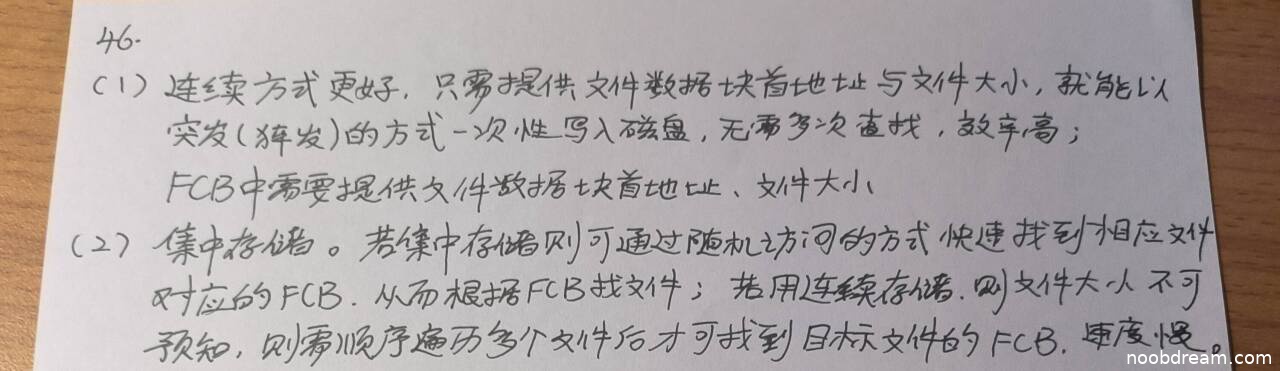 46.
(1) 连续方式更好，只需提供文件数据块首地址与文件大小，就能以
突发(猝发)的方式一次性写入磁盘，无需多次查找，效率高；
FCB中需要提供文件数据块首地址、文件大小
(2) 集中存储。若集中存储则可通过随机访问的方式快速找到相应文件
对应的FCB，从而根据FCB找文件；若用连续存储，则文件大小不可
预知，则需顺序遍历多个文件后才可找到目标文件的FCB，速度慢。
noobdream.com